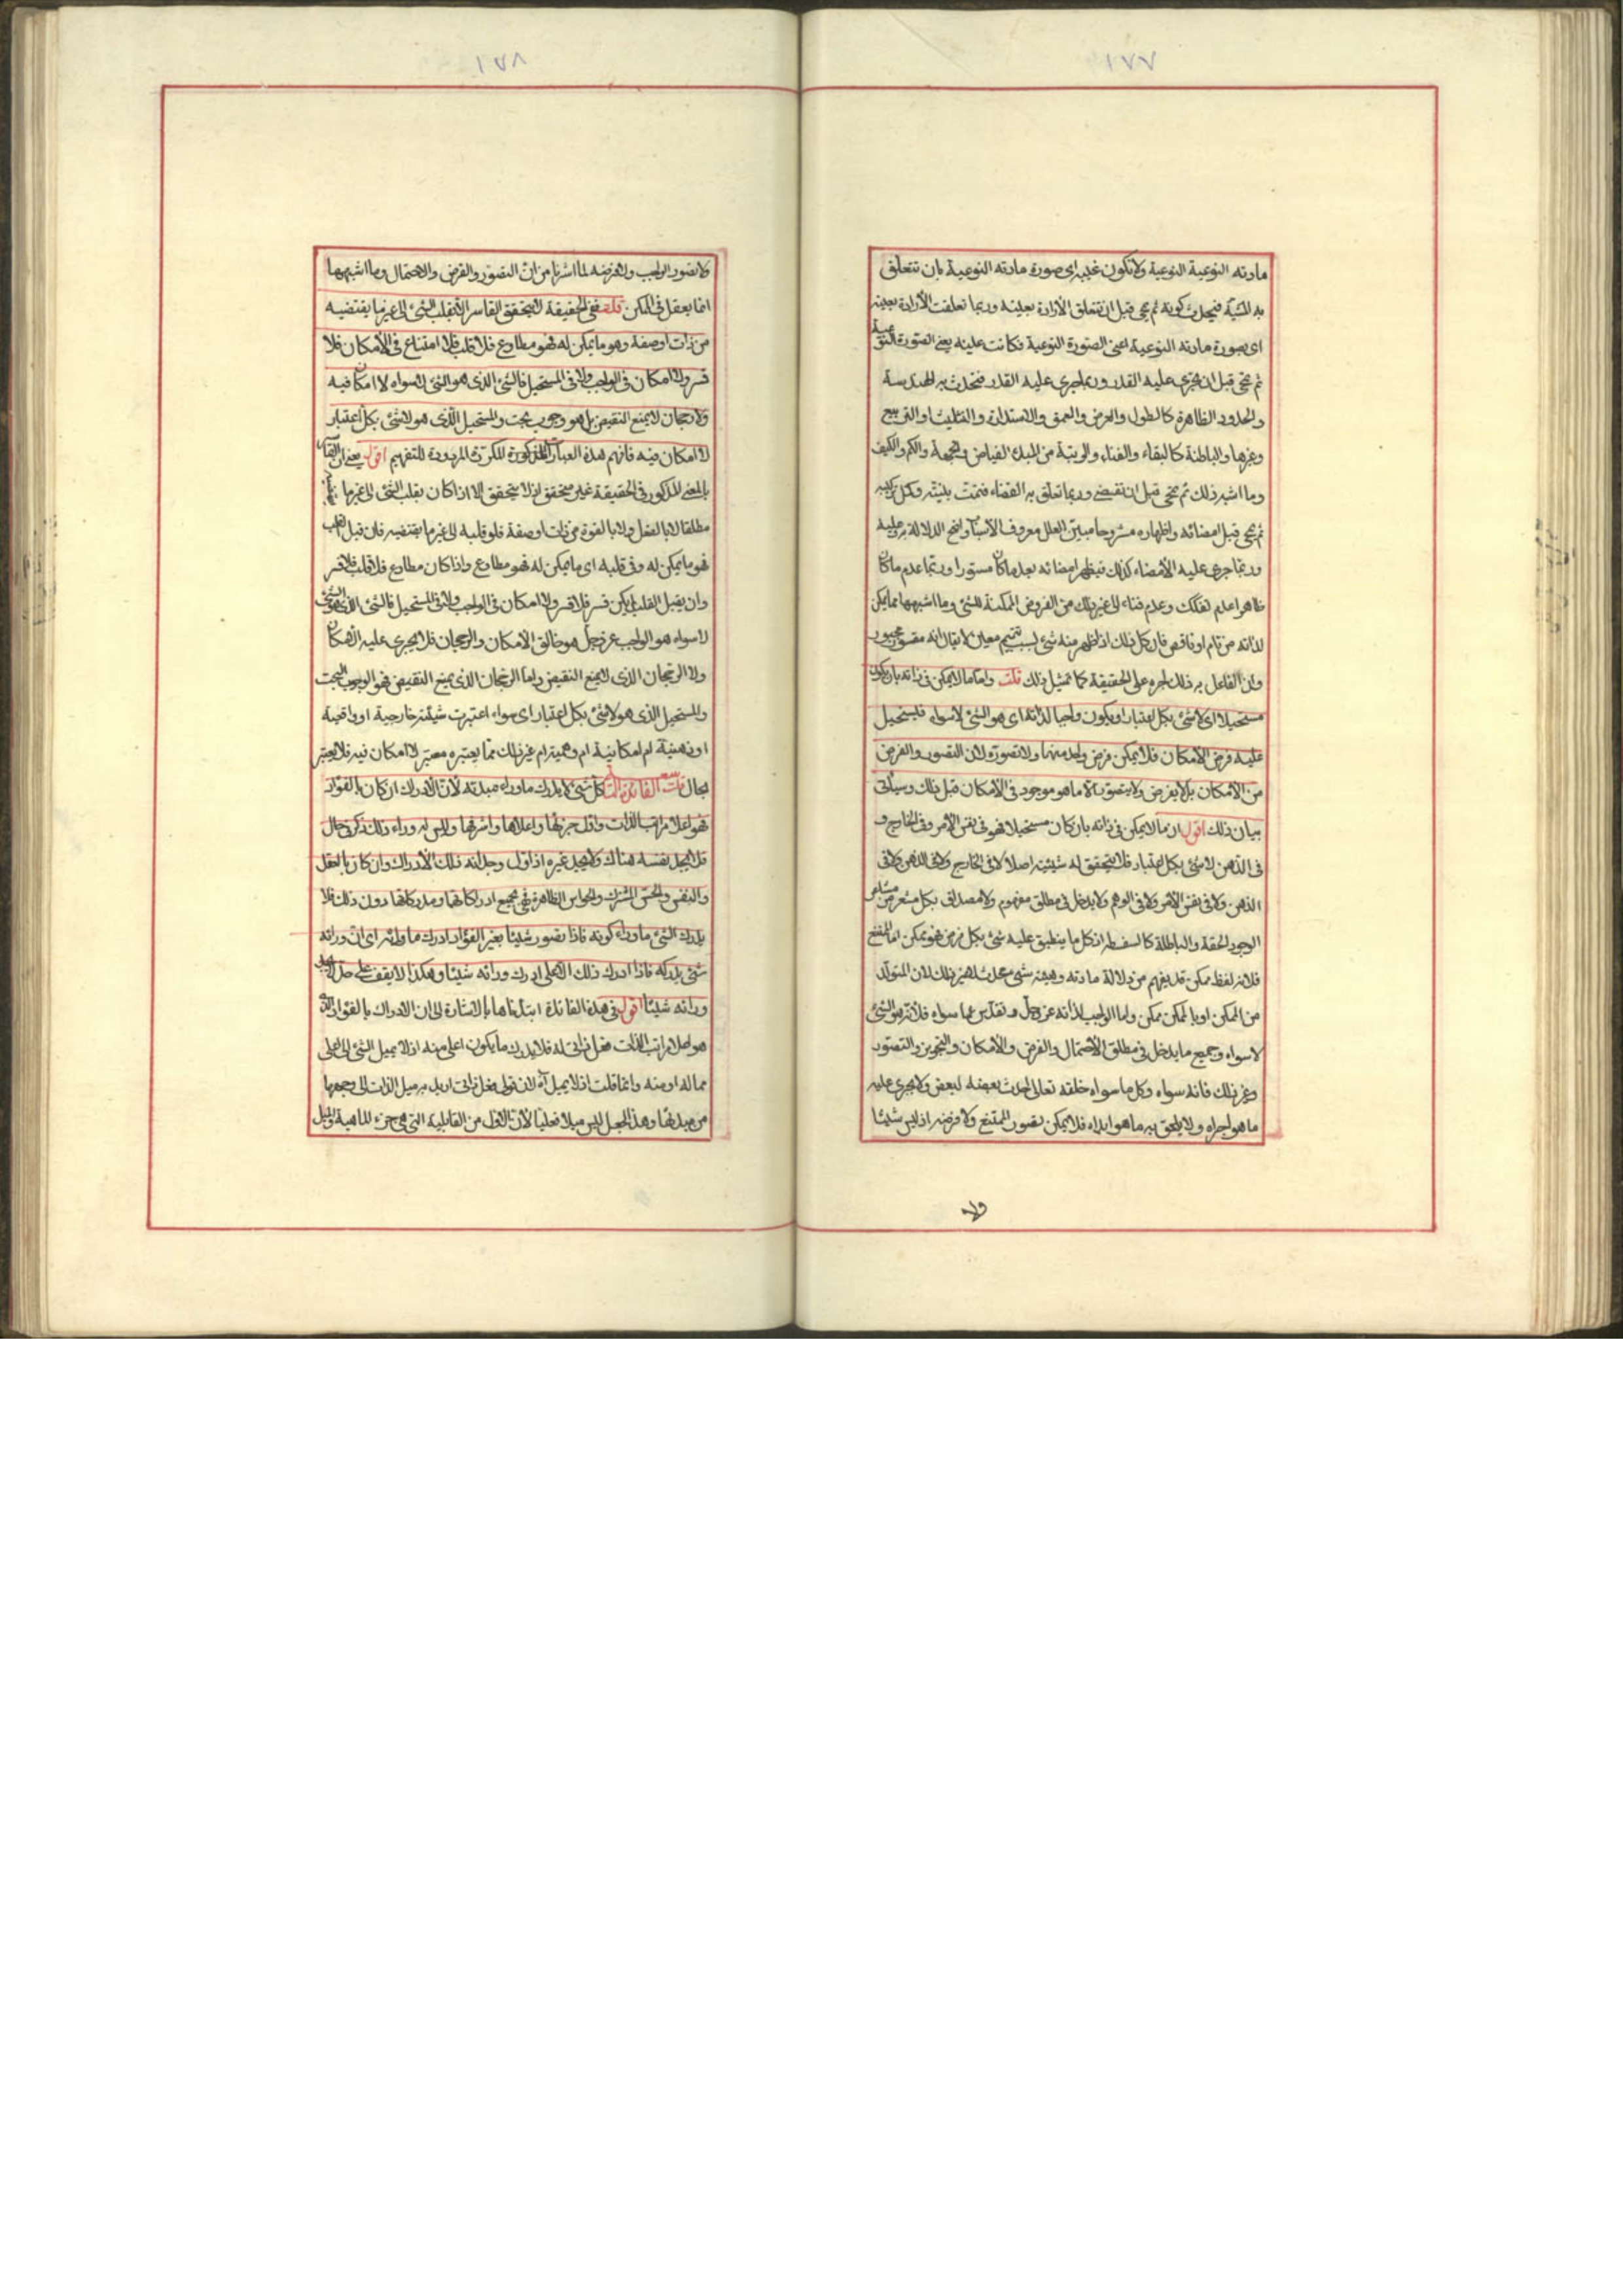 ١٧٧
مادته النوعية النوعية ولا تكون غيبه اى صورة مادته النوعية بان تتعلق
به المشية فيحدث كونه ثم يمحى قبل ان تتعلق الأرادة بعينه وربما تعلقت الأرادة بعينه
اى بصورة مادته النوعية اعنى الصورة النوعية فكانت عينه يعنى الصورة النوعية
ثم يمحى قبل ان يجرى عليه القدر وربما جرى عليه القدر فتحدث به الهندسة
والحدود الظاهرة كالطول والعرض والعمق والاستدارة والتثليث والتربيع
وغيرها والباطنة كالبقاء والفناء والرتبة من المبدء الفياض والجهة والكم والكيف
وما اشبه ذلك ثم يمحى قبل ان يقضى وربما تعلق به القضاء فتمت بنيته وكمل تركيبه
ثم يمحى قبل امضائه واظهاره مشروحا مبين العلل معروف الأسباب واضح الدلالة
وربما جرى عليه الأمضاء كذلك فيظهر امضائه بعد ما كان مستورا وربما عدم ما كان
ظاهرا عدم تفكك وعدم فناء الى غير ذلك من الفروض الممكنة للشئ وما اشبهها مما يمكن
لذاته من تام او ناقص فان كل ذلك اذا ظهر منه شئ بسبب تتميم معين لا يقال انه مقسور مجبور
وان الفاعل به ذلك اجبره على الحقيقة كما تمثيل ذلك قلت واما ما لا يمكن فى ذاته بان يكون
مستحيلا اى لا شئ بكل اعتبار او يكون واجبا لذاته اى هو الشئ لا سواه فيستحيل
عليه فرض الأمكان فلا يمكن فرض واحد منهما ولا تصوره لان التصور والفرض
من الأمكان بل لا يفرض ولا يتصور الا ما هو موجود فى الأمكان قبل ذلك وسيأتى
بيان ذلك اقول ان ما لا يمكن فى ذاته بان كان مستحيلا فهو فى نفس الأمر وفى الخارج و
فى الذهن لا شئ بكل اعتبار فلا يتحقق له شيئية اصلا لا فى الخارج ولا فى الذهن ولا فى
الذهن ولا فى نفس الأمر ولا فى الوهم ولا يدخل فى مطلق مفهوم ولا مصداق بكل مشعر من مشاعر
الوجود الحقة والباطلة كالسفسطه اذ كل ما ينطبق عليه شئ بكل فرض فهو ممكن اما الممتنع
فلانه لفظ ممكن قد يفهم من دلالة مادته وهيئته شئ محدث لغير ذلك لان المتولد
من الممكن او بالممكن ممكن واما الواجب لذاته عز وجل وتقدس عما سواه فلانه هو الشئ
لا سواه وجميع ما يدخل فى مطلق الأحتمال والفرض والأمكان والتجويز والتصور
وغير ذلك فانه سواه وكل ما سواه خلقه تعالى احدث بعضه لبعض ولا يجرى عليه
ما هو اجراه ولا يلحق به ما هو ابداه فلا يمكن تصور الممتنع ولا فرضه اذ ليس شيئا
ولا
١٧٨
ولا تصور الواجب ولا فرضه لما اشرنا من ان التصور والفرض والاحتمال وما اشبهها
انما يعقل فى الممكن قلت ففى الحقيقة لا يتحقق القاسر اذ يقلب الشئ الى غير ما يقتضيه
من ذات او صفة وهو ما يمكن له فهو مطاوع فلا قلب فلا امتناع فى الأمكان فلا
قسر ولا امكان فى الواجب ولا فى المستحيل فالشئ الذى هو الشئ لا سواه لا امكان فيه
ولا رجحان لا يمنع النقيض بل هو وجوب بحت والمستحيل الذى هو لا شئ بكل اعتبار
لا امكان فيه فافهم هذه العبارات المذكورة المكررة المرددة للتفهيم اقول يعنى ان القاسر
بالمعنى المذكور فى الحقيقة غير متحقق اذ لا يتحقق الا اذا كان يقلب الشئ الى غير ما
مطلقا لا بالفعل ولا بالقوة من ذات او صفة فلو قلبه الى غير ما يقتضيه فان قبل القلب
فهو ما يمكن له وفى قلبه اى ما يمكن له فهو مطاوع واذا كان مطاوع فلا قلب فلا قسر
وان لم يقبل القلب لم يكن قسر فلا قسر ولا امكان فى الواجب ولا فى المستحيل فالشئ الذى هو الشئ
لا سواه هو الواجب عز وجل هو خالق الامكان والرجحان فلا يجرى عليه الامكان
ولا الرجحان الذى لا يمنع النقيض واما الرجحان الذى يمنع النقيض فهو الوجوب البحت
والمستحيل الذى هو لا شئ بكل اعتبار اى سواء اعتبرت شيئية خارجية او واقعية
او ذهنية ام امكانية ام وهمية ام غير ذلك مما يعتبره معتبر لا امكان فيه فلا يعتبر
بحال قلت الفائدة التاسعة كل شئ لا يدرك ما وراء مبدئه لأن الأدراك ان كان بالفؤاد
فهو اعلا مراتب الذات واول جزئها واعلاها واشرفها وليس له وراء ذلك ذكر فى حال
فلا يجد نفسه هناك ولا يجد غيره اذ اول وجدانه ذلك الأدراك وان كان بالعقل
والنفس والحس المشترك والحواس الظاهرة فهى بجميع ادراكاتها ومدركاتها دون ذلك فلا
يدرك الشئ ما وراء كونه فاذا تصور شيئا بغير الفؤاد ادرك ما ورائه اى ان ورائه
شئ يدركه فاذا ادرك ذلك الاعلى ادرك ورائه شيئا وهكذا لا يقف على حد لا يجد
ورائه شيئا اقول فى هذه الفائدة ابتدأناها بالاشارة الى ان الادراك بالفؤاد الذى
هو اعلا مراتب الذات فعل ذاتى له فلا يدرك ما يكون اعلى منه اذ لا يميل الشئ الى اعلى
مما له او منه وانما قلت اذ لا يميل آه لان قولى فعل ذاتى اريد به ميل الذات الى وجهها
من مبدئها وهذا الميل ليس ميلا فعليا لأن الأول من القابلية التى هى جزء الماهية والميل